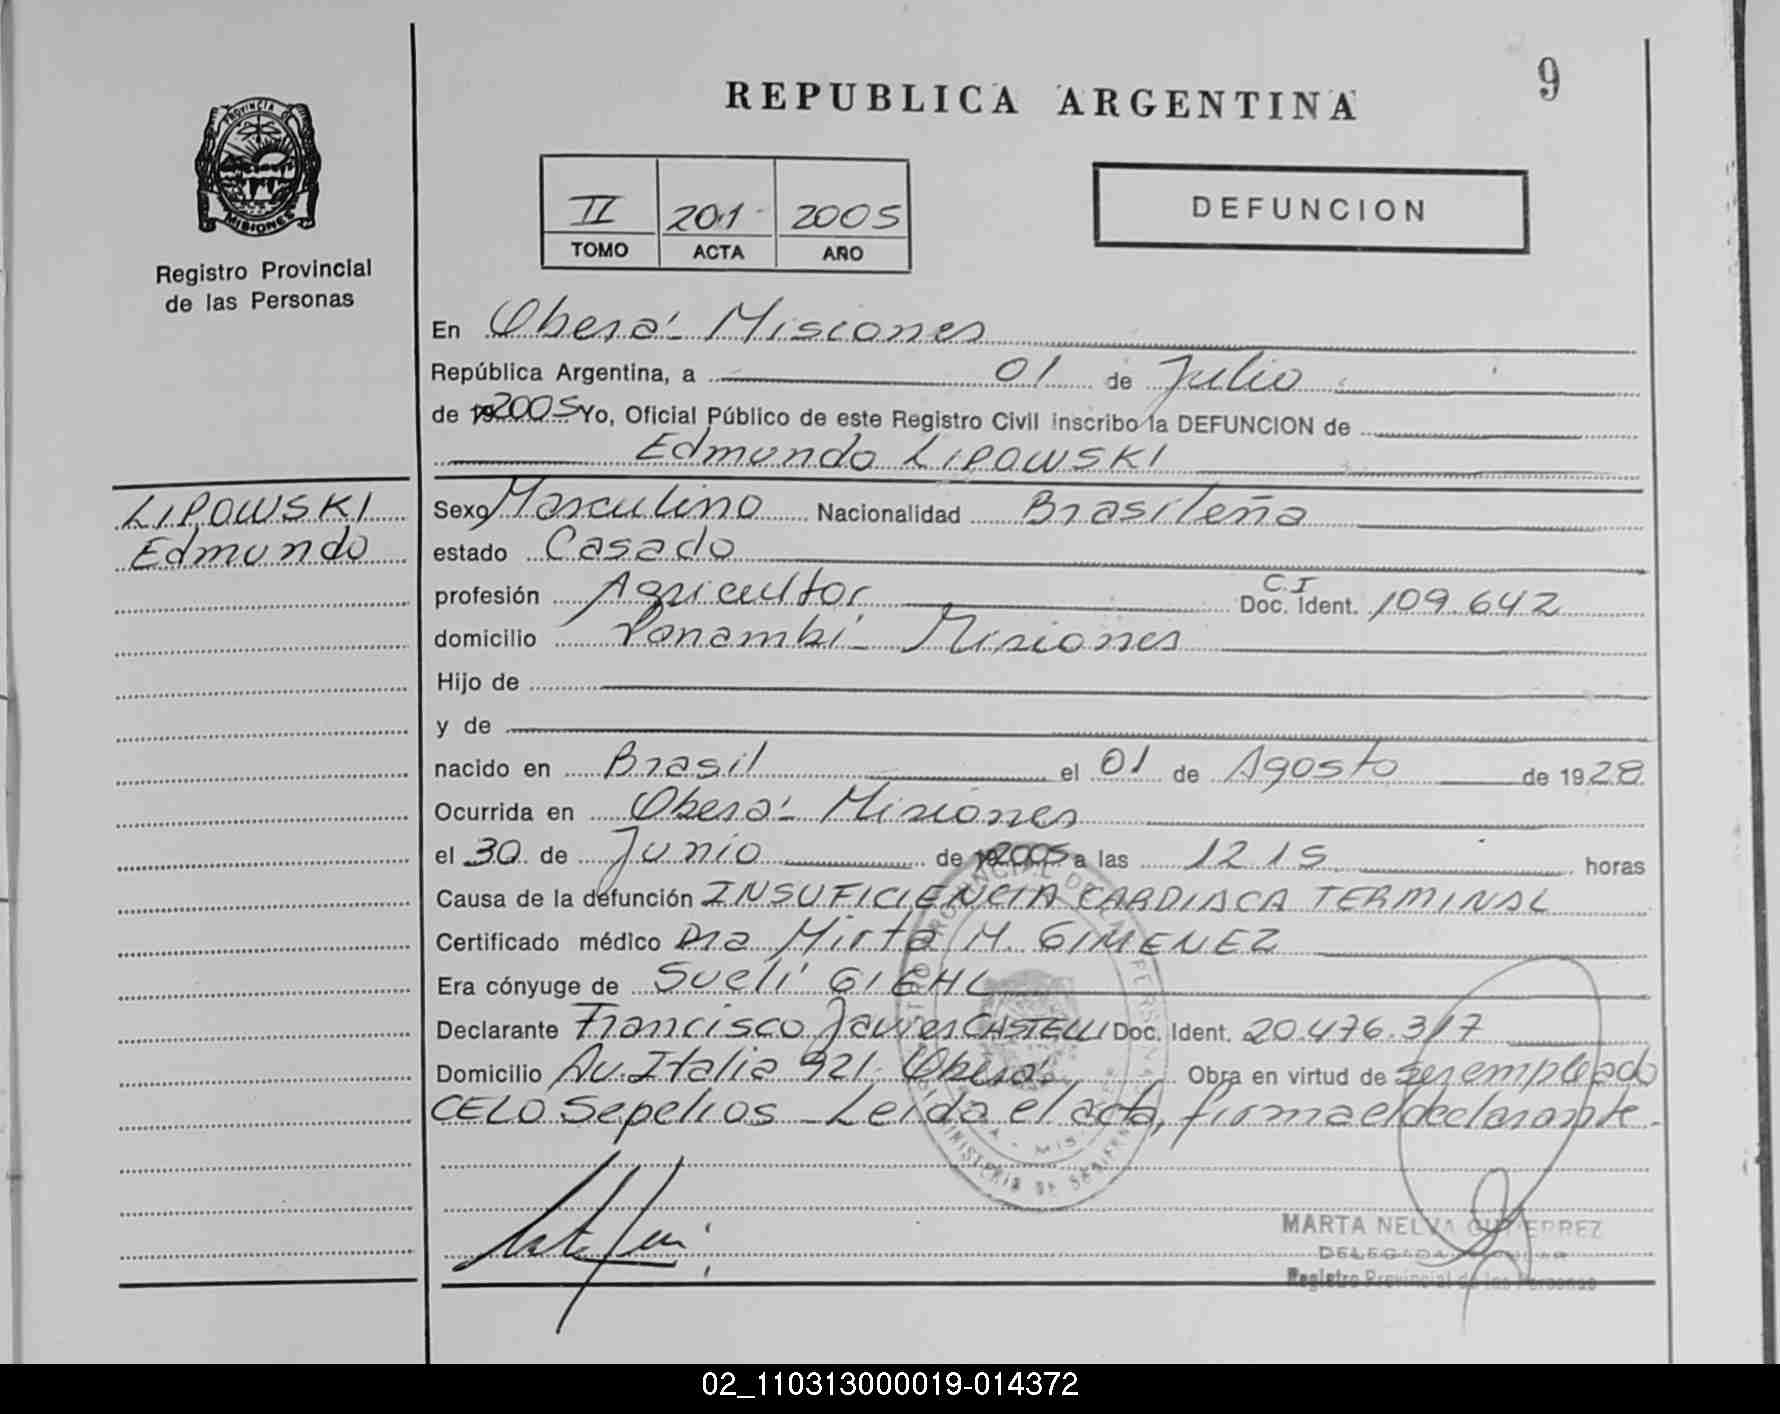 9
REPUBLICA ARGENTINA
PROVINCIA DE
MISIONES
Registro Provincial
de las Personas
II 201 2005
TOMO ACTA AÑO
DEFUNCION
En Oberá - Misiones
República Argentina, a 01 de Julio
de 19 2005 Yo, Oficial Público de este Registro Civil inscribo la DEFUNCION de
Edmundo LIPOWSKI
LIPOWSKI
Edmundo
Sexo Masculino Nacionalidad Brasileña
estado Casado
profesión Agricultor C.I Doc. Ident. 109.642
domicilio Panambí - Misiones
Hijo de
y de
nacido en Brasil el 01 de Agosto de 1928
Ocurrida en Oberá - Misiones
el 30 de Junio de 19 2005 a las 12 15 horas
Causa de la defunción INSUFICIENCIA CARDIACA TERMINAL
Certificado médico Dra Mirta M. GIMENEZ
Era cónyuge de Suelí GIEHL
Declarante Francisco Javier CASTELLI Doc. Ident. 20.476.317
Domicilio Av. Italia 921. Oberá Obra en virtud de ser empleado
CELO Sepelios - Leída el acta, firma el declarante -
MARTA NELVA GUTIERREZ
DELEGADA
Registro Provincial de las Personas
02_110313000019-014372